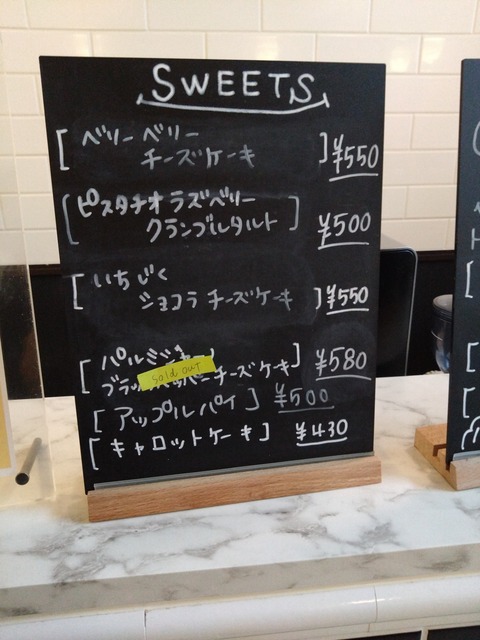 SWEETS
[ ベリーベリー
チーズケーキ ] ¥550
[ ピスタチオラズベリー
クランブルタルト ] ¥500
[ いちじく
ショコラ チーズケーキ ] ¥550
[ パルミジャーノ ]
sold out
チーズケーキ ] ¥580
[ アップルパイ ] ¥500
[ キャロットケーキ ] ¥430